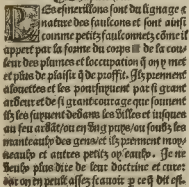 Les esmerillons sont du lignage &
nature des faulcons et sont ainsi
comme petitz faulconnetz cõme il
appert par la forme du corps & de la cou-
leur des plumes et loccupation q̃ on y met
et plus de plaisir q̃ de proffit. Ilz prennent
alouettes et les poursuyuent par si grant
ardeur et de si grant courage que souuent
ilz les suyuent dedans les villes et iusques
au feu ardãt/ou en vng puys/ou soubz les
manteaulx des gens/et ilz prennent moy
neaulx et autres petitz oyseaulx. Je ne
vueil plus dire de leur doctrine et cure
car on en peult assez scauoir p ce q̃ dit est.